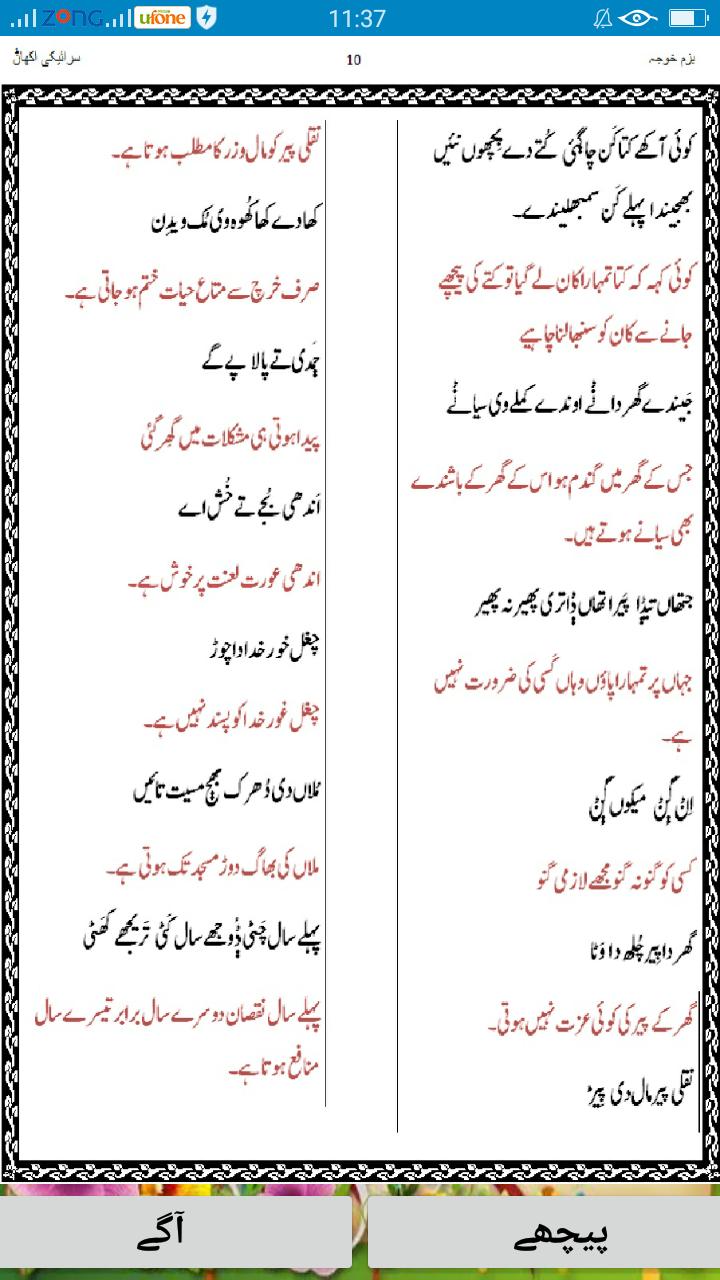 ZONG ufone 11:37
بزم خوجہ 10 سرائیکی اکھاݨ
کوئی آکھے کتا کَن چا ڳئی کُتے دے پچھوں نئیں
بھجیندا پہلے کَن سمبھلیندے۔
کوئی کہہ کہ کتا تمہارا کان لے گیا تو کتے کی پیچھے
جانے سے کان کو سنبھالنا چاہیے
جَیندے گھر داݨے اوندے کملے وی سیاݨے
جس کے گھر میں گندم ہو اس کے گھر کے باشندے
بھی سیانے ہوتے ہیں۔
جتھاں تیڈا پَیر اتھاں ڈاتری پھیر نہ پھیر
جہاں پر تمہارا پاؤں وہاں کَسی کی ضرورت نہیں
ہے۔
اِݨ ڳِݨ میکوں ڳِݨ
کسی کو گنو نہ گنو مجھے لازمی گنو
گھر دا پیر چُلھ دا وَٹا
گھر کے پیر کی کوئی عزت نہیں ہوتی۔
نقلی پیر مال دی پِیڑ
نقلی پیر کو مال و زر کا مطلب ہوتا ہے۔
کھادے کھا کُھوہ وی مُک ویدِن
صرف خرچ سے متاع حیات ختم ہو جاتی ہے۔
ڄمدی تے پالا پے گے
پیدا ہوتی ہی مشکلات میں گھِر گئی
اَندھی بُجے تے خُش اے
اندھی عورت لعنت پر خوش ہے۔
چغل خور خدا دا چوڑ
چغل غور خدا کو پسند نہیں ہے۔
مُلاں دی دُھرک بھج مسیت تائیں
ملاں کی بھاگ دوڑ مسجد تک ہوتی ہے۔
پہلے سال چَٹی ڈوجھے سال کَٹی تَریجھے کَھٹی
پہلے سال نقصان دوسرے سال برابر تیسرے سال
منافع ہوتا ہے۔
پیچھے
آگے